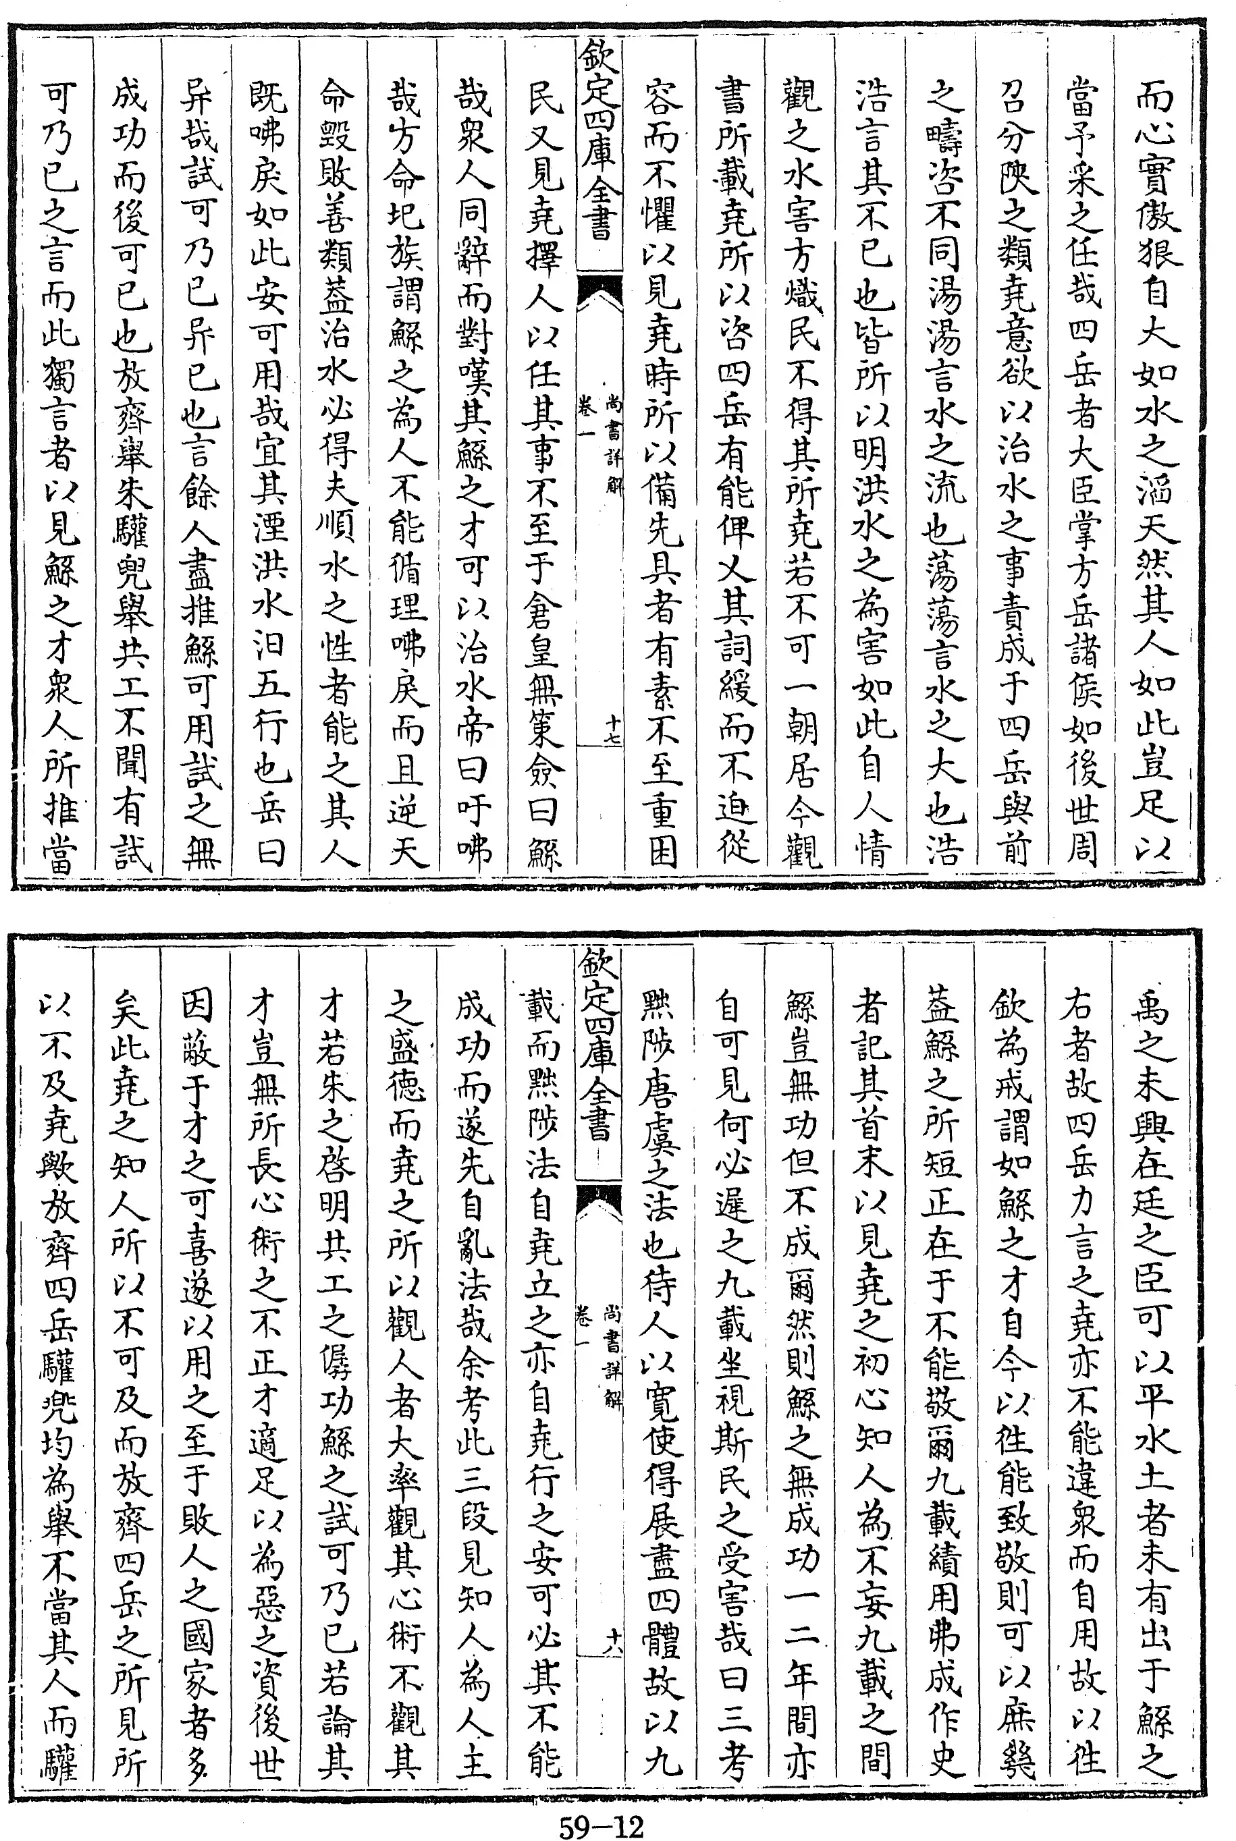 而心實傲狠自大如水之滔天然其人如此豈足以
當予采之任哉四岳者大臣掌方岳諸侯如後世周
召分陜之類堯意欲以治水之事責成于四岳與前
之疇咨不同湯湯言水之流也蕩蕩言水之大也浩
浩言其不已也皆所以明洪水之為害如此自人情
觀之水害方熾民不得其所堯若不可一朝居今觀
書所載堯所以咨四岳有能俾乂其詞緩而不迫從
容而不懼以見堯時所以備先具者有素不至重困
欽定四庫全書
尚書詳解
卷一
十七
民又見堯擇人以任其事不至于倉皇無策僉曰鯀
哉衆人同辭而對嘆其鯀之才可以治水帝曰吁咈
哉方命圮族謂鯀之為人不能循理咈戾而且逆天
命毁敗善類葢治水必得夫順水之性者能之其人
既咈戾如此安可用哉宜其湮洪水汩五行也岳曰
异哉試可乃已异已也言餘人盡推鯀可用試之無
成功而後可已也放齊舉朱驩兜舉共工不聞有試
可乃已之言而此獨言者以見鯀之才衆人所推當
禹之未興在廷之臣可以平水土者未有出于鯀之
右者故四岳力言之堯亦不能違衆而自用故以徃
欽為戒謂如鯀之才自今以徃能致敬則可以庶幾
葢鯀之所短正在于不能敬爾九載績用弗成作史
者記其首末以見堯之初心知人為不妄九載之間
鯀豈無功但不成爾然則鯀之無成功一二年間亦
自可見何必遲之九載坐視斯民之受害哉曰三考
黜陟唐虞之法也待人以寛使得展盡四體故以九
欽定四庫全書
尚書詳解
卷一
十八
載而黜陟法自堯立之亦自堯行之安可必其不能
成功而遂先自亂法哉余考此三段見知人為人主
之盛德而堯之所以觀人者大率觀其心術不觀其
才若朱之啓明共工之僝功鯀之試可乃已若論其
才豈無所長心術之不正才適足以為惡之資後世
因蔽于才之可喜遂以用之至于敗人之國家者多
矣此堯之知人所以不可及而放齊四岳之所見所
以不及堯歟放齊四岳驩兜均為舉不當其人而驩
59-12